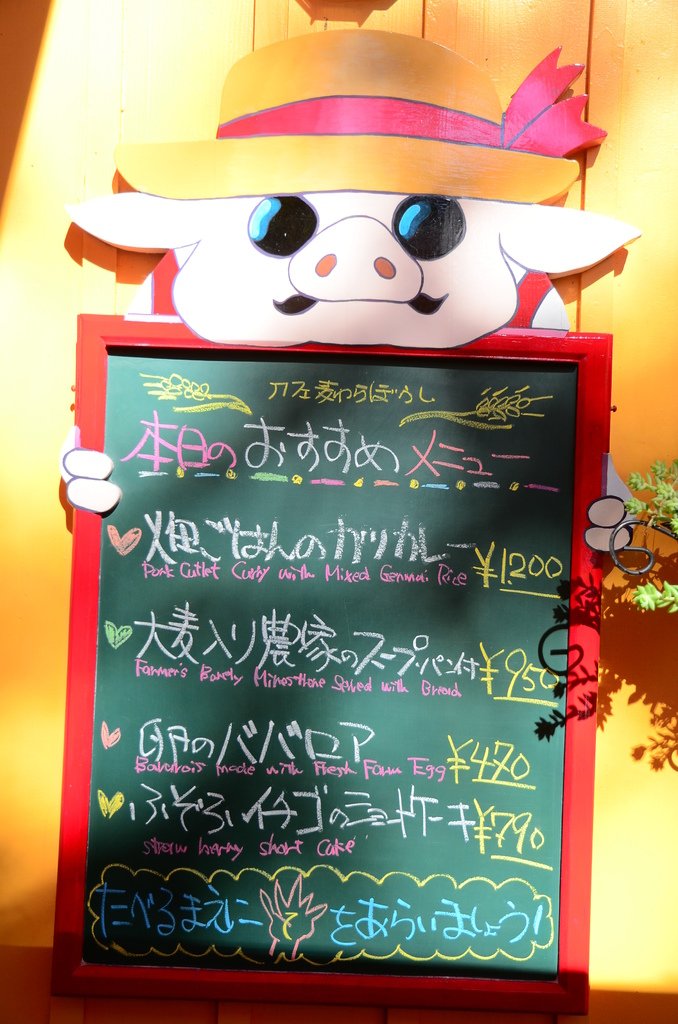 カフェ麦わらぼうし
本日のおすすめメニュー
畑ごはんのカツカレー ¥1200
Pork Cutlet Curry with Mixed Germai Rice
大麦入り農家のスープ・パン付 ¥950
Farmer's Barely Minestrone Served with Bread
卵のババロア ¥470
Bavarois made with Fresh Farm Egg
ふぞろいイチゴのショートケーキ ¥790
straw berry short Cake
たべるまえにてをあらいましょう!